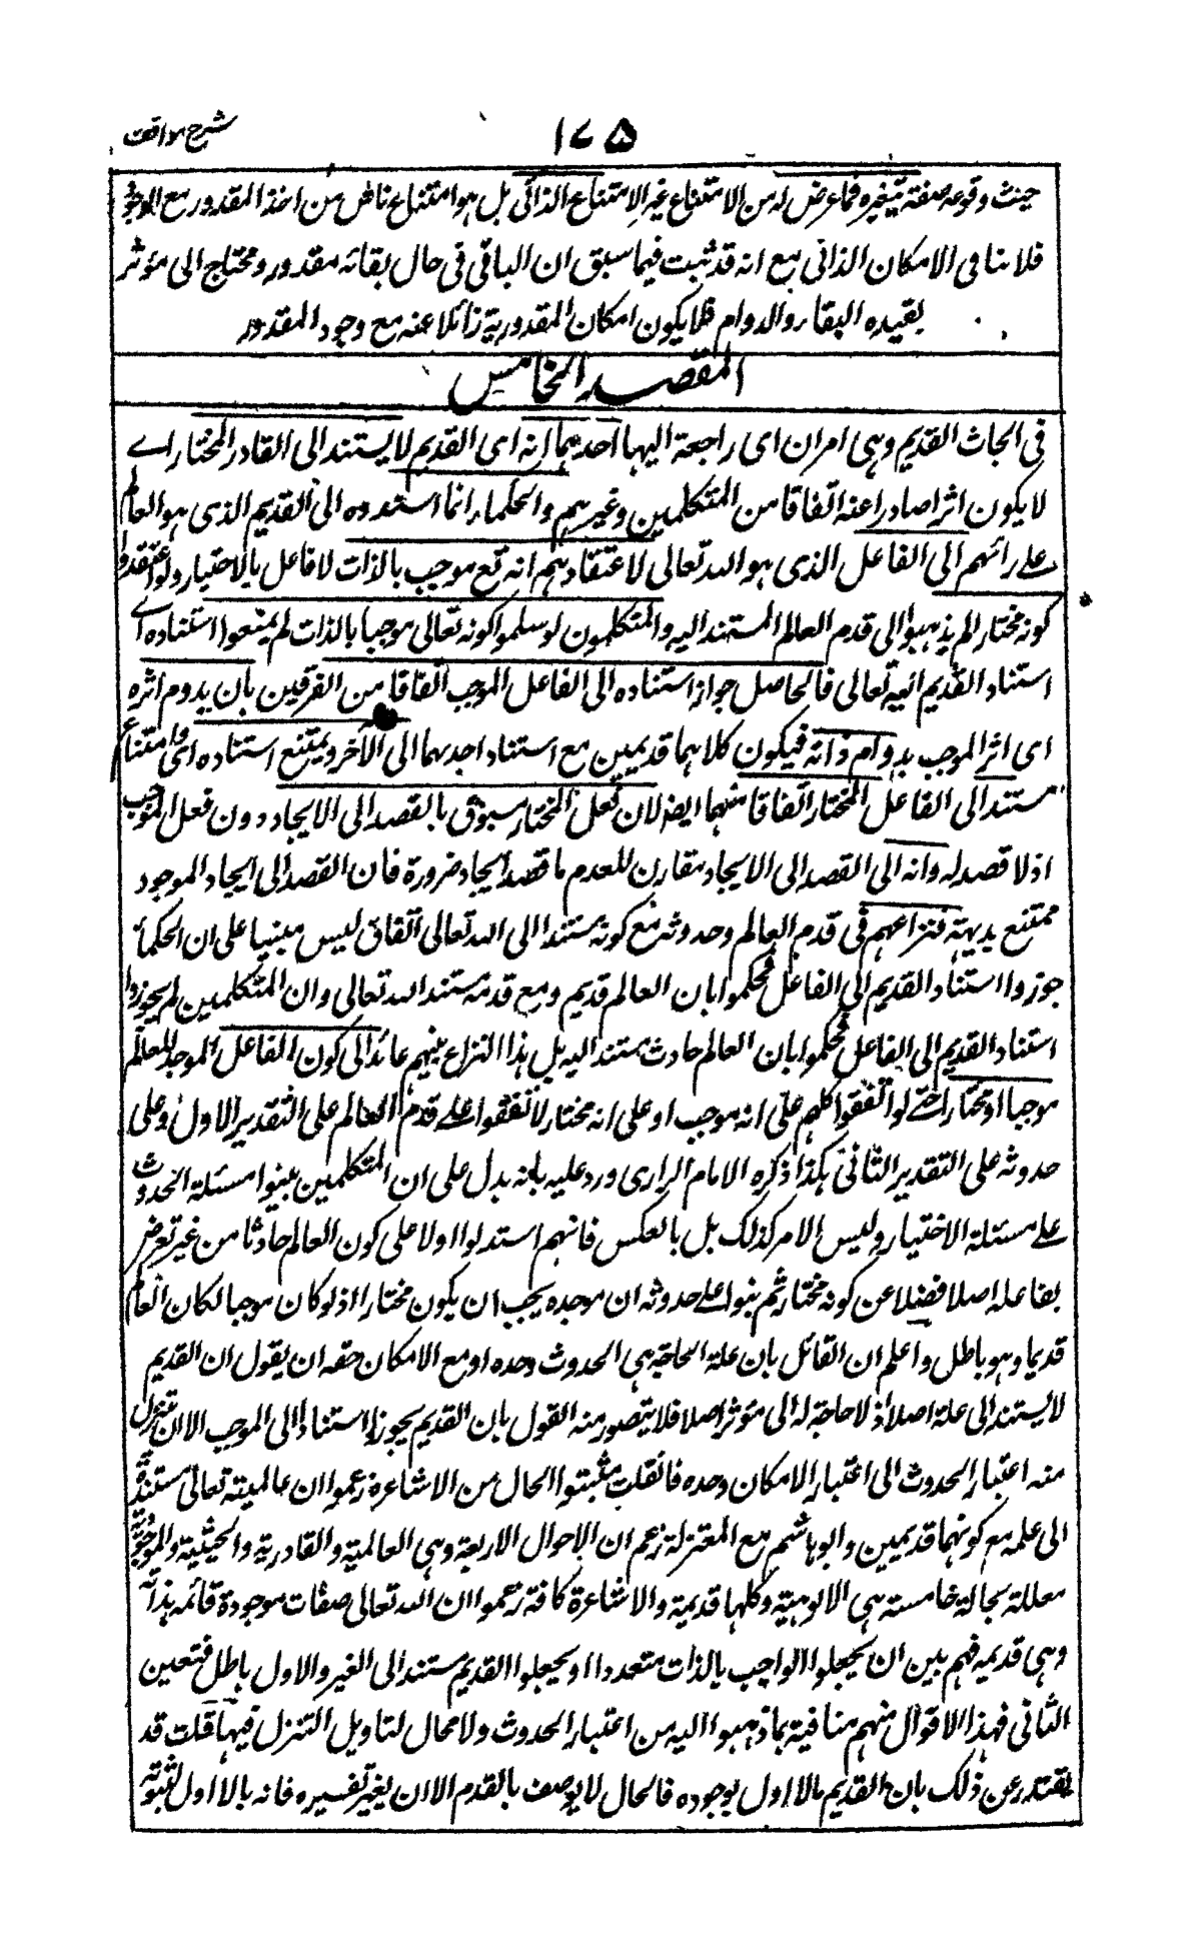 ۱۷۵
شرح مواقف
حيث وقوعه صفة لغيره فما عرض له من الامتناع غير الامتناع الذاتى بل هو امتناع ناش من اخذ المقدور مع الوجود
فلا ينافى الامكان الذاتى مع انه قد ثبت فيما سبق ان الباقى فى حال بقائه مقدور ومحتاج الى مؤثر
يفيده البقاء والدوام فلا يكون امكان المقدورية زائلا عنه مع وجود المقدور
المقصد الخامس
فى ابحاث القديم وهى امران اى راجعة اليهما احدهما انه اى القديم لا يستند الى القادر المختار اے
لا يكون اثرا صادرا عنه اتفاقا من المتكلمين وغيرهم والحكماء انما اسندوه الى القديم الذى هو العالم
على رائهم الى الفاعل الذى هو الله تعالى لاعتقادهم انه تع موجب بالذات لا فاعل بالاختيار ولو اعتقدوا
كونه مختارا لم يذهبوا الى قدم العالم المستند اليه والمتكلمون لو سلموا كونه تعالى موجبا بالذات لم يمنعوا استناده اے
استناد القديم اليه تعالى فالحاصل جواز استناده الى الفاعل الموجب اتفاقا من الفريقين بان يدوم اثره
اى اثر الموجب بدوام ذاته فيكون كلاهما قديمين مع استناد احدهما الى الآخر ويمتنع استناده اى وامتناع
مستند الى الفاعل المختار اتفاقا منهما ايضا لان فعل المختار مسبوق بالقصد الى الايجاد دون فعل الموجب
اذ لا قصد له وانه الى القصد الى الايجاد مقارن للعدم ما قصد ايجاده ضرورة فان القصد الى ايجاد الموجود
ممتنع بديهة فنزاعهم فى قدم العالم وحدوثه مع كونه مستندا الى الله تعالى اتفاقا ليس مبنيا على ان الحكماء
جوزوا استناد القديم الى الفاعل فحكموا بان العالم قديم ومع قدمه مستند الله تعالى وان المتكلمين لم يجوزوا
استناد القديم الى الفاعل فحكموا بان العالم حادث مستند اليه بل هذا النزاع بينهم عائد الى كون الفاعل الموجد للعالم
موجبا او مختارا حتى لو اتفقوا كلهم على انه موجب او على انه مختار لاتفقوا على قدم العالم على التقدير الاول وعلى
حدوثه على التقدير الثانى هكذا ذكره الامام الرازى ورد عليه بانه يدل على ان المتكلمين بنوا مسئلة الحدوث
على مسئلة الاختيار وليس الامر كذلك بل بالعكس فانهم استدلوا اولا على كون العالم حادثا من غير تعرض
بفاعله اصلا فضلا عن كونه مختارا ثم بنوا على حدوثه ان موجده يجب ان يكون مختارا اذ لو كان موجبا لكان العالم
قديما وهو باطل واعلم ان القائل بان علة الحاجة هى الحدوث وحده او مع الامكان حقه ان يقول ان القديم
لا يستند الى علة اصلا اذ لا حاجة له الى مؤثر اصلا فلا يتصور منه القول بان القديم يجوز استناده الى الموجب الا ان يتنزل
منه اعتبار الحدوث الى اعتبار الامكان وحده فان قلت مثبتوا الحال من الاشاعرة زعموا ان عالميته تعالى مستندة
الى علمه مع كونهما قديمين وابو هاشم مع المعتزلة زعم ان الاحوال الاربعة وهى العالمية والقادرية والحيثية والموجودية
معللة بحالة خامسة هى الالوهية وكلها قديمة والاشاعرة كافة زعموا ان الله تعالى صفات موجودة قائمة بذاته
وهى قديمة فهم بين ان يجعلوا الواجب بالذات متعددا او يجعلوا القديم مستندا الى الغير والاول باطل فتعين
الثانى فهذه الاقوال منهم منافية بما ذهبوا اليه من اعتبار الحدوث ولا مجال لتاويل التنزل فيها قلت قد
يعتذر عن ذلك بان القديم ما لا اول لوجوده فالحال لا يوصف بالقدم الا ان يغير تفسيره فانه بالا اول لثبوته